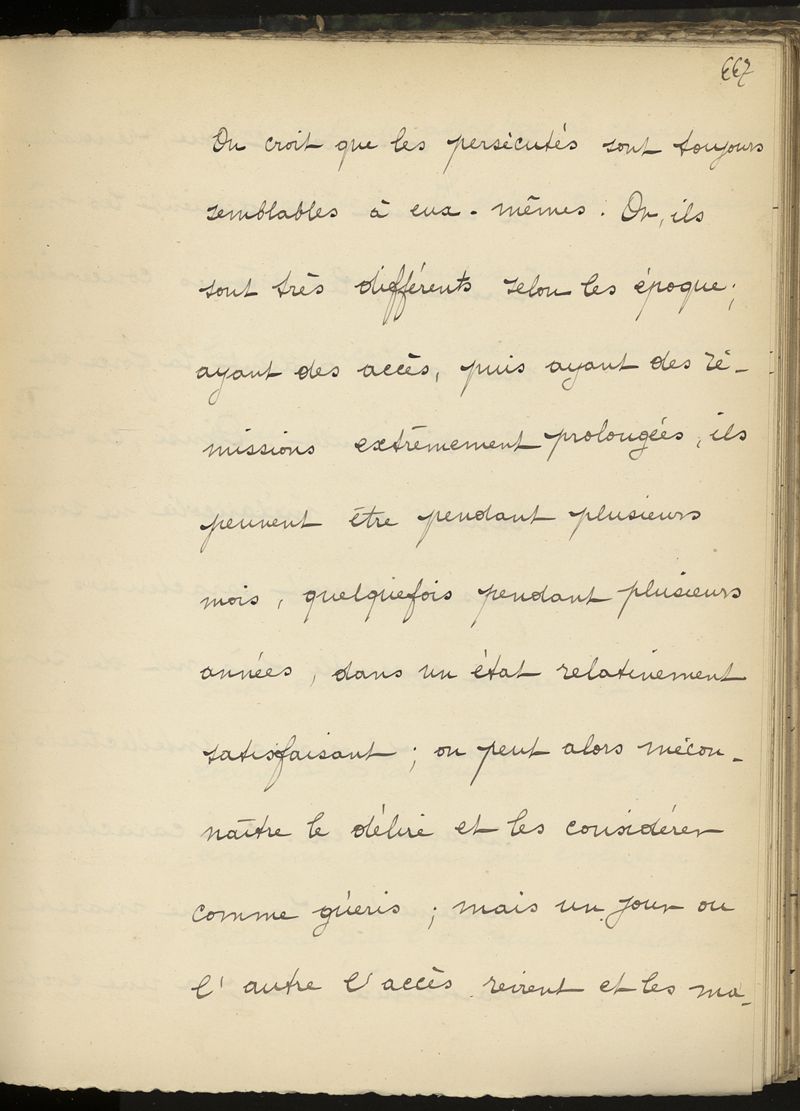 667
On croit que les persécutés sont toujours
semblables à eux-mêmes. Or, ils
sont très différents selon les époque;
ayant des accès, puis ayant des ré-
missions extrêmement prolongées, ils
peuvent être pendant plusieurs
mois, quelquefois pendant plusieurs
années, dans un état relativement
satisfaisant; on peut alors mécon-
naître le délire et les considérer
comme guéris; mais un jour ou
l'autre l'accès revient et les ma-